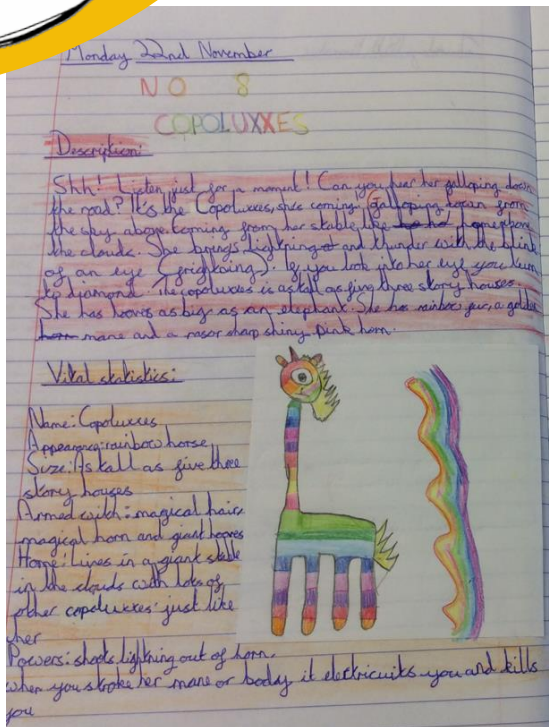 Monday 22nd November
NO 8
COPOLUXXES
Description:
Shh! Listen just for a moment! Can you hear her galloping down
the road? It's the Copoluxxes, she's coming (galloping down from
the sky above. Coming from her stable like home upon
the clouds. She brings lightning and thunder with the blink
of an eye (frightning). If you look into her eye you turn
to diamond. The copoluxxes is as tall as five three story houses.
She has hooves as big as an elephant. She has rainbow fur, a golden
mane and a rasor sharp shiny pink horn.
Vital statistics:
Name: Copoluxxes
Appearance: rainbow horse
Size: As tall as five three
story houses
Armed with: magical hair,
magical horn and giant hooves
Home: Lives in a giant stable
in the clouds with lots of
other copoluxxes' just like
her
Powers: shoots lightning out of horn.
when you stroke her mane or body it electricuits you and kills
you